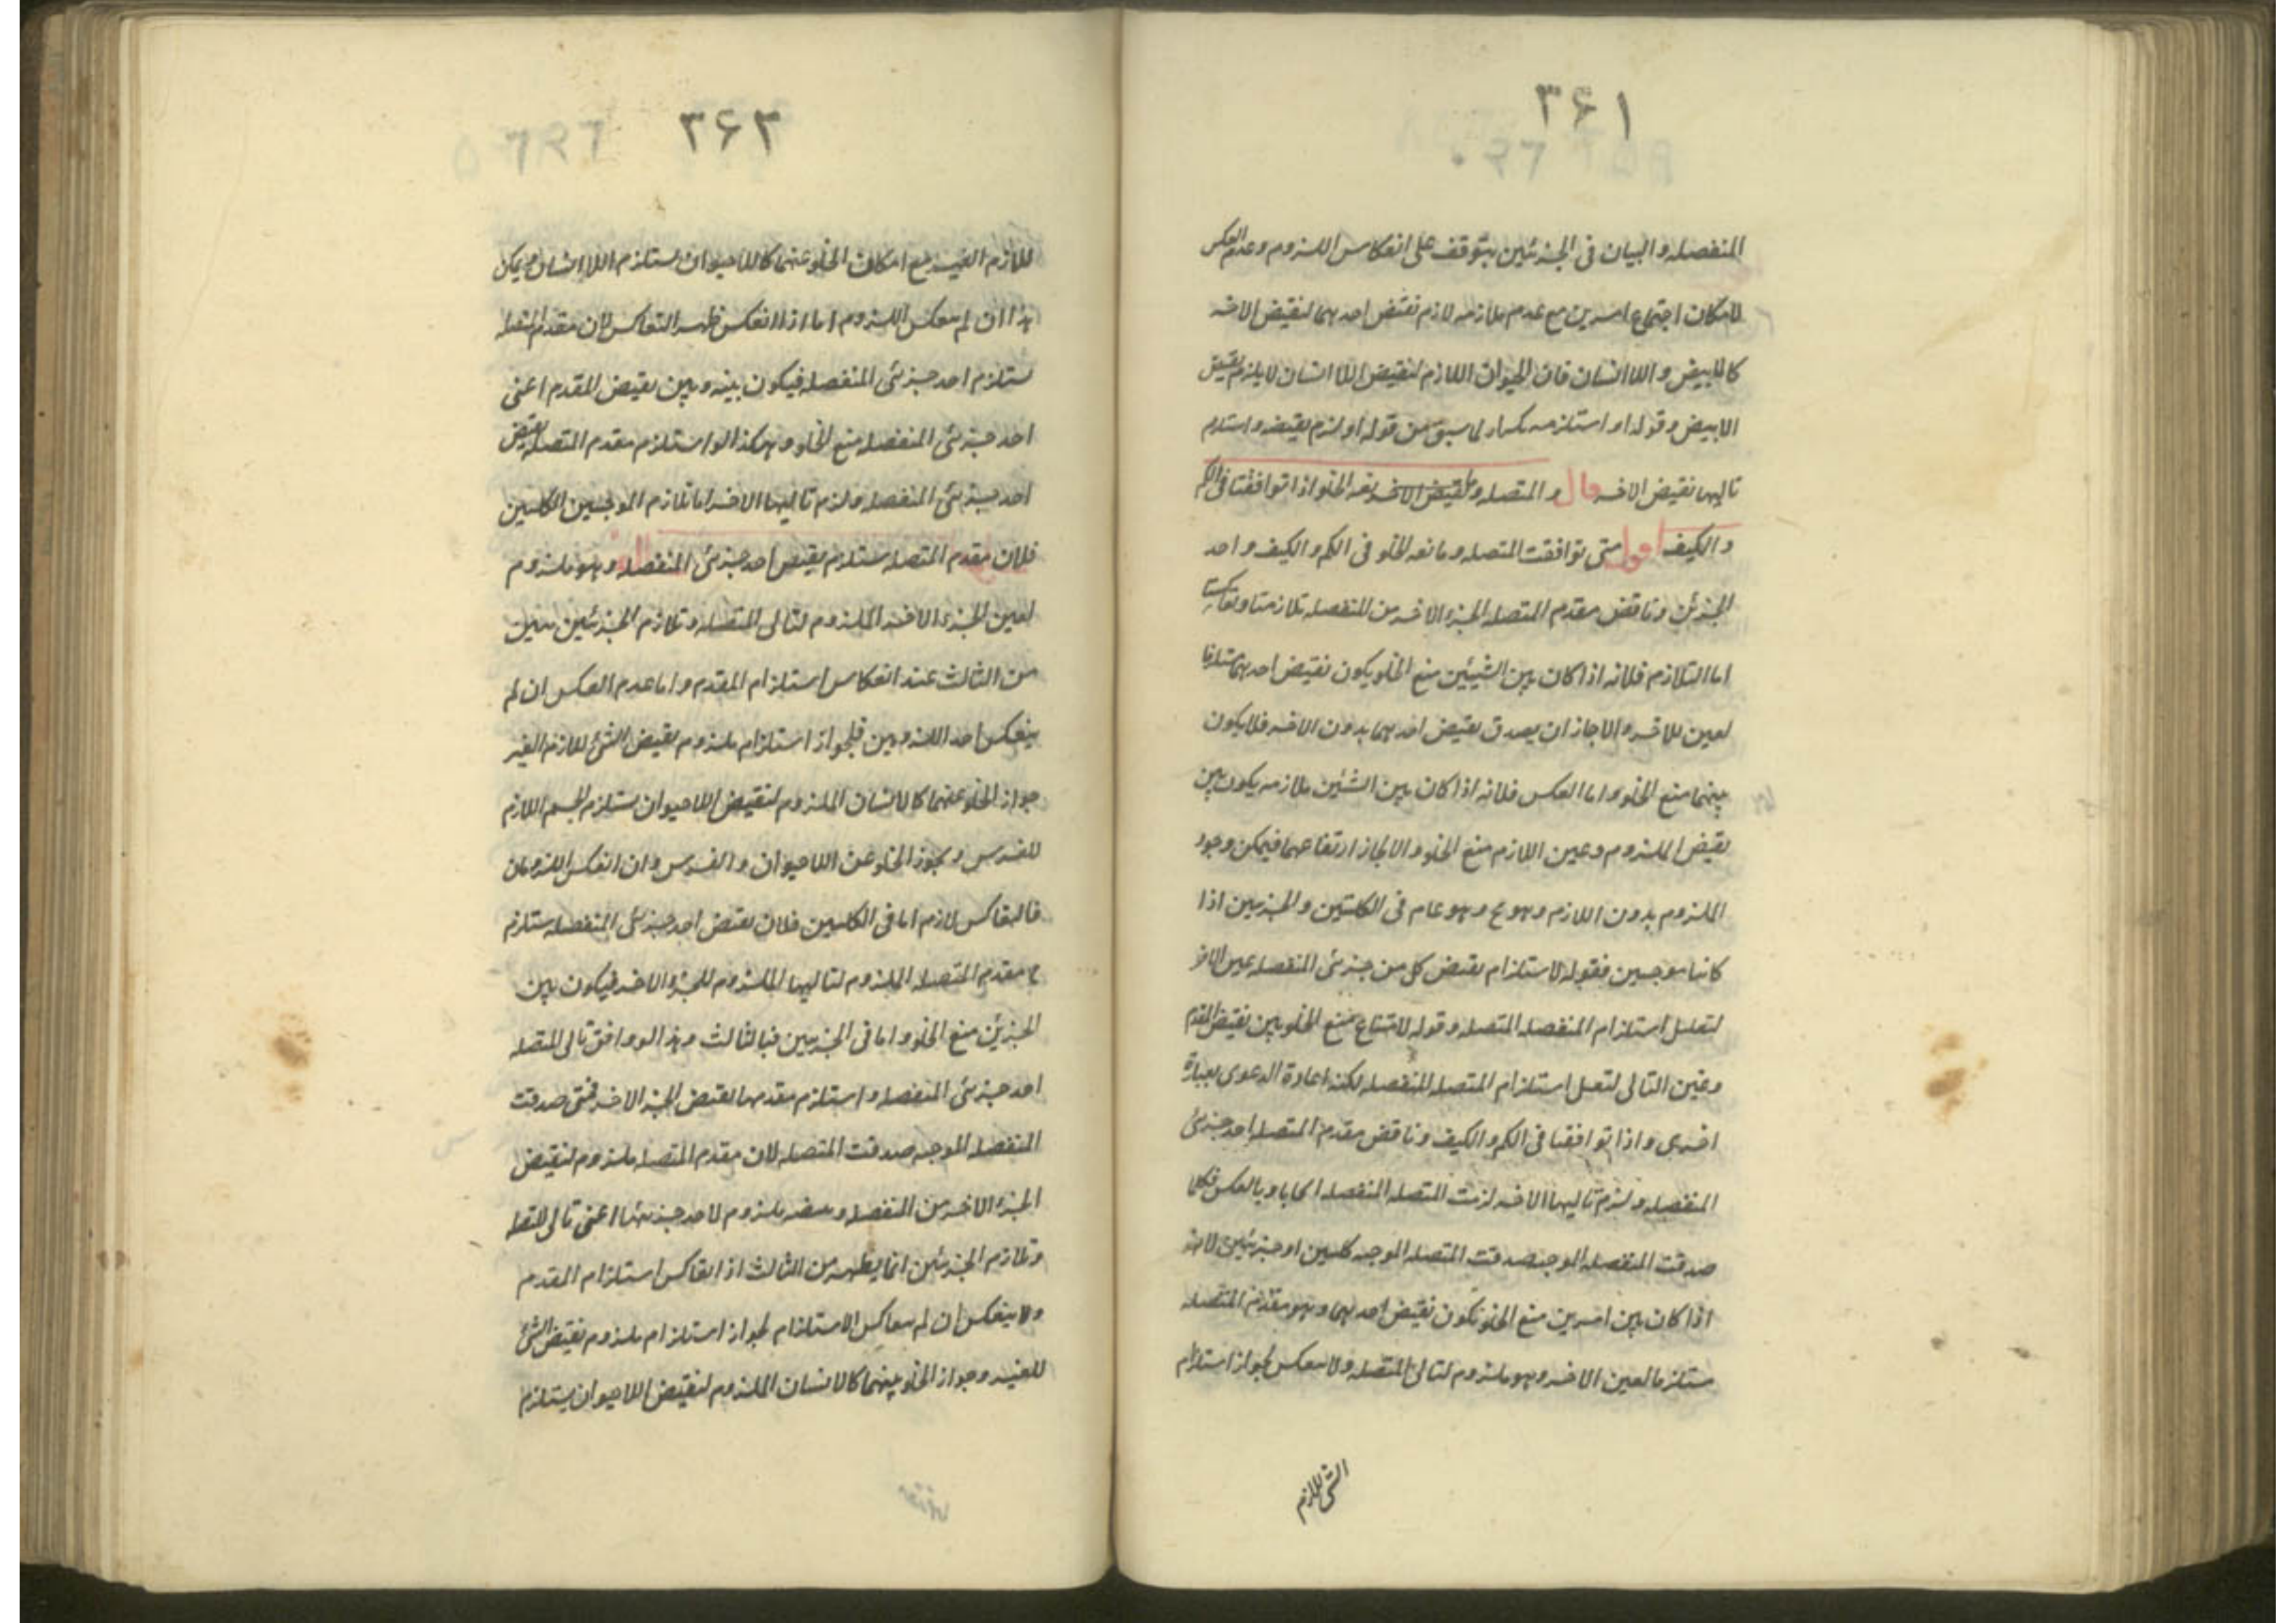 ۳۶۱
المنفصله والبيان فى الجزئين يتوقف على انعكاس اللزوم وعدم العكس
لامكان اجتماع امرين مع عدم ملازمه لازم نقيض احدهما لنقيض الاخر
كالابيض واللاانسان فان الحيوان اللازم لنقيض اللاانسان لا يلزم نقيض
الابيض وقوله او استلزمه تكرار لما سبق من قوله او لزم نقيضه واستلزم
تاليها نقيض الاخر قال والمتصله ومانعه الخلو اذا توافقتا فى الكم
والكيف اقول متى توافقت المتصله ومانعه الخلو فى الكم والكيف واحد
الجزئين وناقض مقدم المتصله الجزء الاخر من المنفصله تلازمتا وتعاكستا
اما التلازم فلانه اذا كان بين الشيئين منع الخلو يكون نقيض احدهما مستلزما
لعين الاخر والا جاز ان يصدق نقيض احدهما بدون الاخر فلا يكون
بينهما منع الخلو واما العكس فلانه اذا كان بين الشئين ملازمه يكون بين
نقيض الملزوم وعين اللازم منع الخلو والا لجاز ارتفاعهما فيمكن وجود
الملزوم بدون اللازم وهو مح وهو عام فى الكليتين والجزئيين اذا
كانتا موجبتين فقوله لاستلزام نقيض كل من جزئى المنفصله عين الاخر
لتعليل استلزام المنفصله المتصله وقوله لامتناع منع الخلو بين نقيض المقدم
وعين التالى لتعليل استلزام المتصله للمنفصله لكنه اعادة الدعوى بعبارة
اخرى واذا توافقتا فى الكم والكيف وناقض مقدم المتصله احد جزئى
المنفصله ولزم تاليها الاخر لزمت المتصله المنفصله ايجابا وبالعكس فكلما
صدقت المنفصله الموجبه صدقت المتصله الموجبه كليتين او جزئيتين لانه
اذا كان بين امرين منع الخلو تكون نقيض احدهما وهو مقدم المتصله
مستلزما لعين الاخر وهو ملزوم لتالى المتصله ولا ينعكس لجواز استلزام
الشئ اللازم
۳۶۳
للازم الغير مع امكان الخلو عنهما كاللاحيوان يستلزم اللاانسان ويمكن
هذا ان لم ينعكس اللزوم اما اذا انعكس ظهر التعاكس لان مقدم المتصله
يستلزم احد جزئى المنفصله فيكون بينه وبين نقيض المقدم اعنى
احد جزئى المنفصله منع الخلو وهكذا لو استلزم مقدم المتصله نقيض
احد جزئى المنفصله ولزم تاليها الاخر اما تلازم الموجبتين الكليتين
فلان مقدم المتصله يستلزم نقيض احد جزئى المنفصله وهو ملزوم
لعين الجزء الاخر الملزوم لتالى المتصله وتلازم الجزئيتين يتبين
من الثالث عند انعكاس استلزام المقدم واما عدم العكس ان لم
ينعكس احد اللزومين فلجواز استلزام ملزوم نقيض الشئ للازم الغير
جواز الخلو عنهما كالانسان الملزوم لنقيض اللاحيوان يستلزم الجسم اللازم
للفرس ويجوز الخلو عن اللاحيوان والفرس وان انعكس اللزومان
فالتعاكس لازم اما فى الكليتين فلان نقيض احد جزئى المنفصله يستلزم
ح مقدم المتصله الملزوم لتاليها الملزوم للجزء الاخر فيكون بين
الجزئين منع الخلو واما فى الجزئيتين فبالثالث وهذا لو وافق تالى المتصله
احد جزئى المنفصله واستلزم مقدمها نقيض الجزء الاخر فمتى صدقت
المنفصله الموجبه صدقت المتصله لان مقدم المتصله ملزوم لنقيض
الجزء الاخر من المنفصله ونقيضه ملزوم لاحد جزئيها اعنى تالى المتصله
وتلازم الجزئيتين انما يظهر من الثالث اذا تعاكس استلزام المقدم
ولا ينعكس ان لم يتعاكس الاستلزام لجواز استلزام ملزوم نقيض الشئ
للغير وجواز الخلو بينهما كالانسان الملزوم لنقيض اللاحيوان يستلزم